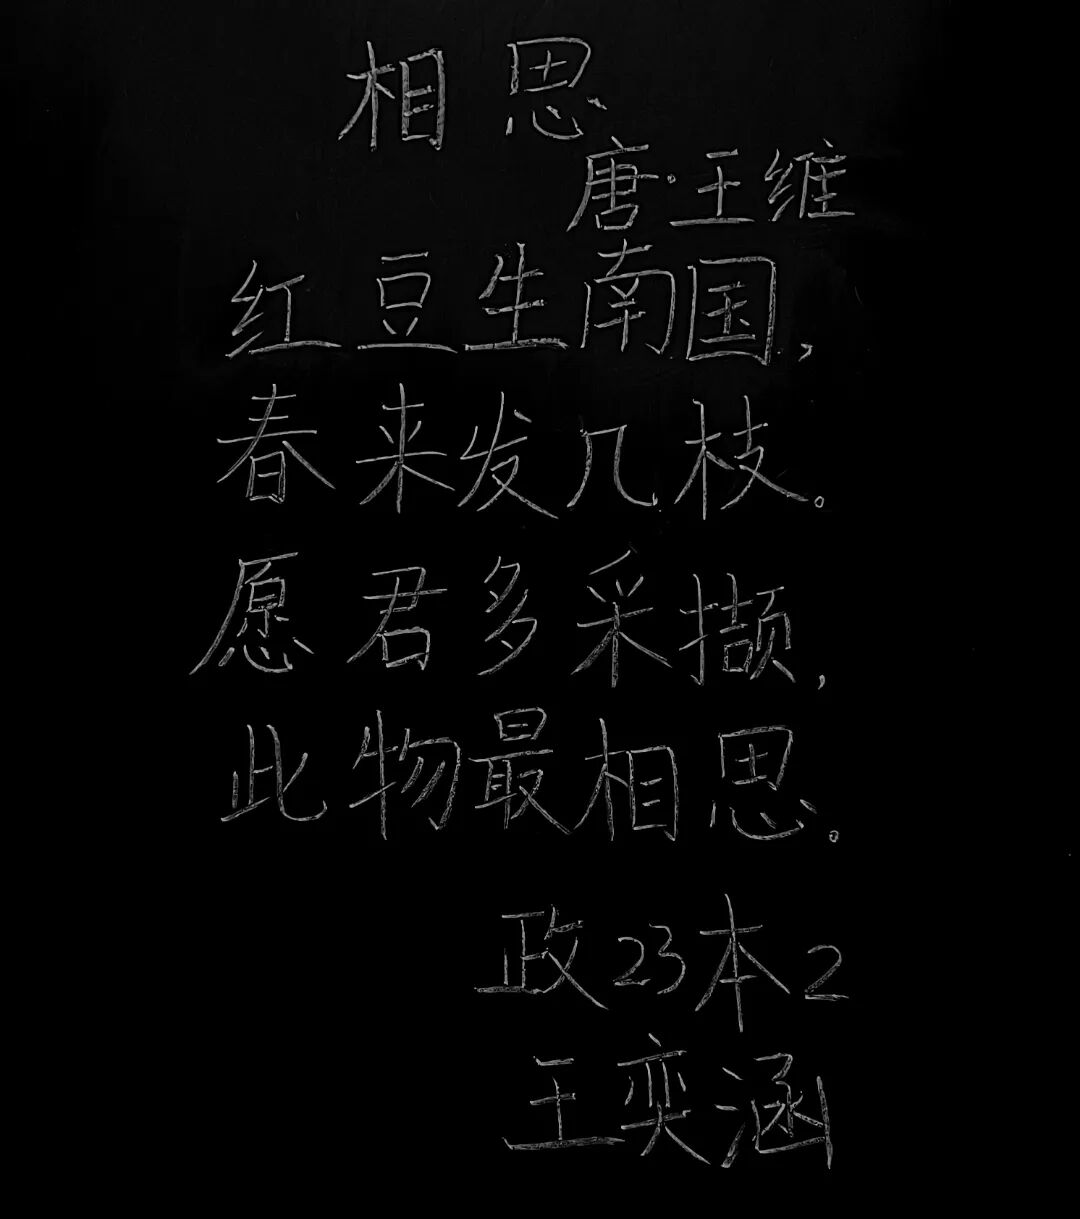 相思
唐·王维
红豆生南国,
春来发几枝。
愿君多采撷,
此物最相思。
政23本2
王奕涵